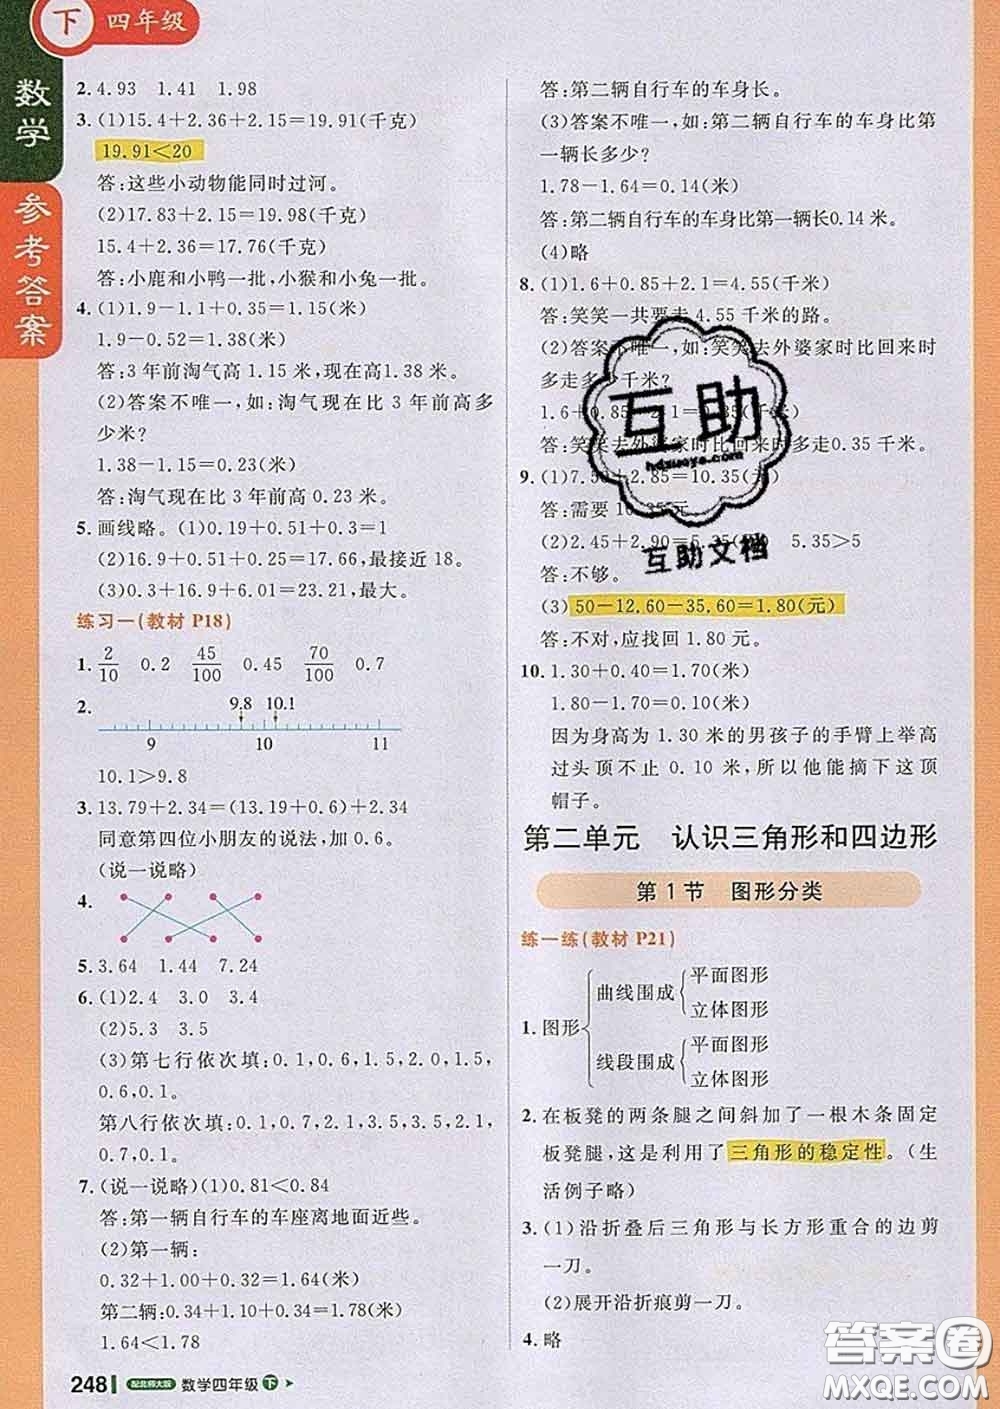 下 四年级
数学
参考答案
2. 4.93 1.41 1.98
3. (1)15.4+2.36+2.15=19.91(千克)
19.91<20
答:这些小动物能同时过河。
(2)17.83+2.15=19.98(千克)
15.4+2.36=17.76(千克)
答:小鹿和小鸭一批,小猴和小兔一批。
4. (1)1.9-1.1+0.35=1.15(米)
1.9-0.52=1.38(米)
答:3年前淘气高1.15米,现在高1.38米。
(2)答案不唯一,如:淘气现在比3年前高多
少米?
1.38-1.15=0.23(米)
答:淘气现在比3年前高0.23米。
5. 画线略。(1)0.19+0.51+0.3=1
(2)16.9+0.51+0.25=17.66,最接近18。
(3)0.3+16.9+6.01=23.21,最大。
练习一(教材 P18)
1. 2/10 0.2 45/100 0.45 70/100 0.7
2. 9.8 10.1
9 10 11
10.1>9.8
3. 13.79+2.34=(13.19+0.6)+2.34
同意第四位小朋友的说法,加0.6。
(说一说略)
4.
5. 3.64 1.44 7.24
6. (1)2.4 3.0 3.4
(2)5.3 3.5
(3)第七行依次填:0.1,0.6,1.5,2.0,1.5,
0.6,0.1。
第八行依次填:0.1,0.7,2.1,3.5,3.5,2.1,
0.7,0.1。
7. (说一说略)(1)0.81<0.84
答:第一辆自行车的车座离地面近些。
(2)第一辆:
0.32+1.00+0.32=1.64(米)
第二辆:0.34+1.10+0.34=1.78(米)
1.64<1.78
248 配北师大版 数学四年级 下
答:第二辆自行车的车身长。
(3)答案不唯一,如:第二辆自行车的车身比第
一辆长多少?
1.78-1.64=0.14(米)
答:第二辆自行车的车身比第一辆长0.14米。
(4)略
8. (1)1.6+0.85+2.1=4.55(千米)
答:笑笑一共要走4.55千米的路。
(2)答案不唯一,如:笑笑去外婆家时比回来时
多走多少千米?
1.6+0.85-2.1=0.35(千米)
答:笑笑去外婆家时比回来时多走0.35千米。
9. (1)7.50+2.85=10.35(元)
答:需要10.35元。
(2)2.45+2.90=5.35(元) 5.35>5
答:不够。
(3)50-12.60-35.60=1.80(元)
答:不对,应找回1.80元。
10. 1.30+0.40=1.70(米)
1.80-1.70=0.10(米)
因为身高为1.30米的男孩子的手臂上举高
过头顶不止0.10米,所以他能摘下这顶
帽子。
第二单元 认识三角形和四边形
第1节 图形分类
练一练(教材 P21)
1. 图形
曲线围成
平面图形
立体图形
线段围成
平面图形
立体图形
2. 在板凳的两条腿之间斜加了一根木条固定
板凳腿,这是利用了三角形的稳定性。(生
活例子略)
3. (1)沿折叠后三角形与长方形重合的边剪
一刀。
(2)展开沿折痕剪一刀。
4. 略
互助
hdzuoye.com
互助文档
答案圈
MXQE.COM